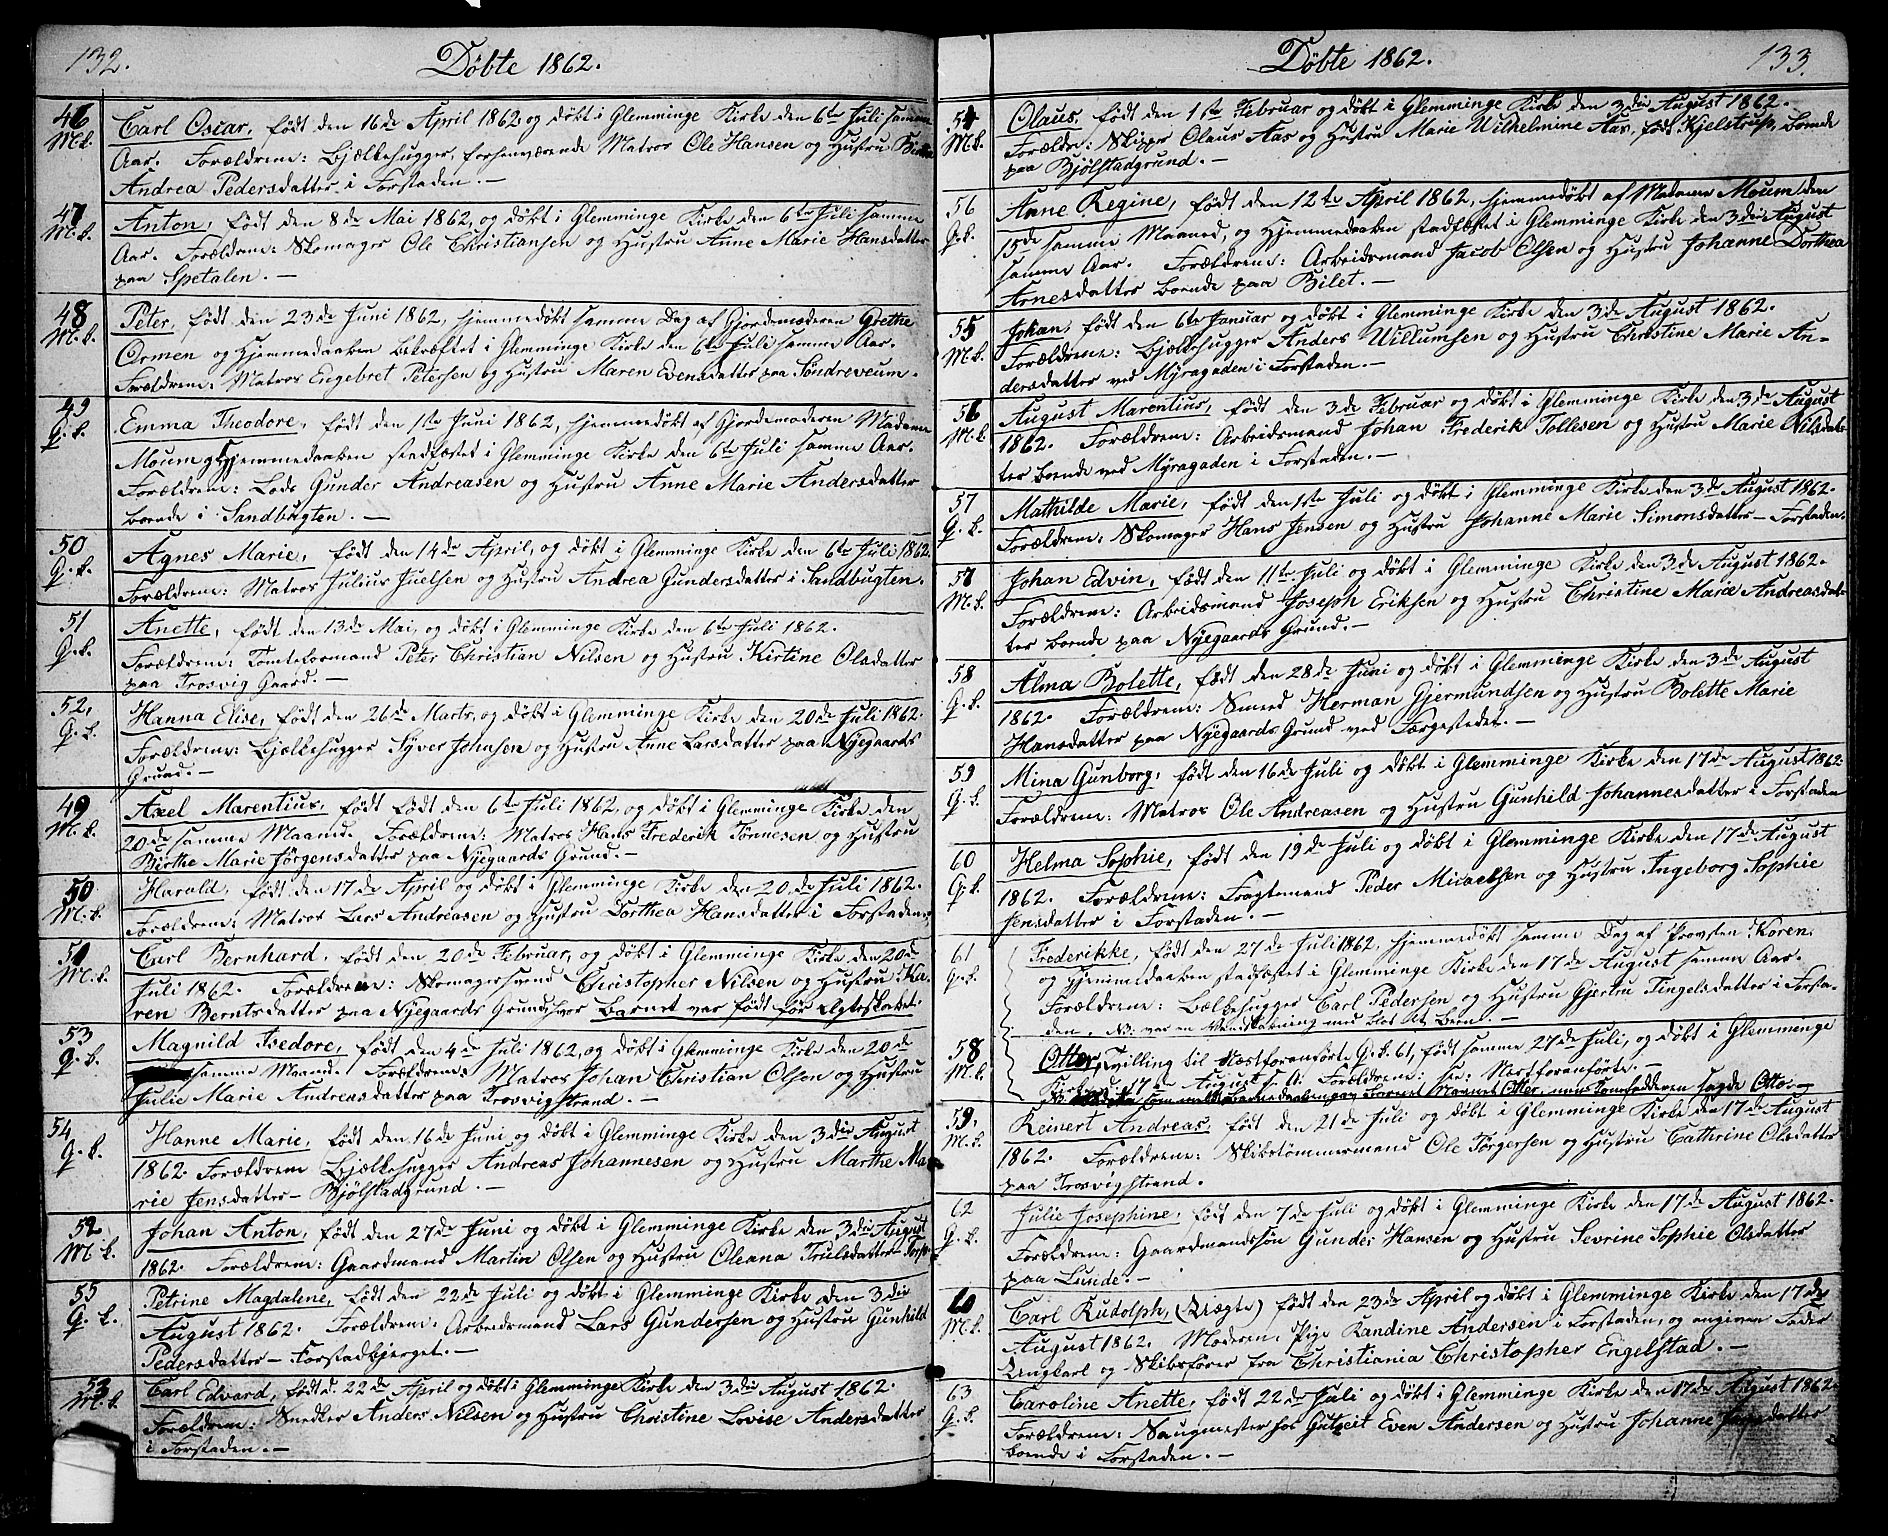 132.
Døbte 1862.
46 M.k. Carl Oscar, født den 16de April 1862, og døbt i Glemminge Kirke den 6te Juli samme
Aar. Forældrene: Bjælkehugger, forhenværende Matros Ole Hansen og Hustru
Andrea Pedersdatter i Forstaden. —
47 M.k. Anton, født den 8de Mai 1862, og døbt i Glemminge Kirke den 6te Juli samme
Aar. Forældrene: Skomager Ole Christiansen og Hustru Anne Marie Hansdatter
paa Spetalen. —
48 M.k. Peter, født den 23de Juni 1862, hjemmedøbt samme Dag af Gjordemoderen Grethe
Ormen og Hjemmedaaben bekræftet i Glemminge Kirke den 6te Juli samme Aar.
Forældrene: Matros Engebret Petersen og Hustru Maren Evensdatter paa Søndreveum.
49 Q.k. Emma Theodore, født den 1ste Juni 1862, hjemmedøbt af Gjordemoderen Madame
Moum og Hjemmedaaben stadfæstet i Glemminge Kirke den 6te Juli samme Aar.
Forældrene: Lods Gunder Andreasen og Hustru Anne Marie Andersdatter
boende i Sandbugten. —
50 Q.k. Agnes Marie, født den 14de April, og døbt i Glemminge Kirke den 6te Juli 1862.
Forældrene: Matros Julius Juelsen og Hustru Andrea Gundersdatter i Sandbugten.
51 Q.k. Anette, født den 13de Mai, og døbt i Glemminge Kirke den 6te Juli 1862.
Forældrene: Tomteformand Peter Christian Nilsen og Hustru Kirtine Olsdatter
paa Trosvig Gaard. —
52, Q.k. Hanna Elise, født den 26de Marts, og døbt i Glemminge Kirke den 20de Juli 1862.
Forældrene: Bjælkehugger Syver Johnsen og Hustru Anne Larsdatter paa Nyegaards
Grund. —
49 M.k. Axel Marentius, født født den 6te Juli 1862, og døbt i Glemminge Kirke den
20de samme Maand. Forældrene: Matros Hans Frederik Tønnesen og Hustru
Birthe Marie Jørgensdatter paa Nyegaards Grund. —
50 M.k. Harald, født den 17de April og døbt i Glemminge Kirke den 20de Juli 1862.
Forældrene: Matros Lars Andreasen og Hustru Dorthea Hansdatter i Forstaden.
51 M.k. Carl Bernhard, født den 20de Februar, og døbt i Glemminge Kirke den 20de
Juli 1862. Forældrene: Skomagersvend Christopher Nilsen og Hustru Ka-
ren Berntsdatter paa Nyegaards Grund, hvor Barnet var født før Ægteskabet.
53 Q.k. Magnild Isedore, født den 4de Juli 1862, og døbt i Glemminge Kirke den 20de
samme Maand. Forældrene: Matros Johan Christian Olsen og Hustru
Julie Marie Andreasdatter paa Trosvigstrand. —
54 Q.k. Hanne Marie, født den 16de Juni og døbt i Glemminge Kirke den 3die August
1862. Forældrene Bjælkehugger Andreas Johannesen og Hustru Marthe Ma-
rie Jensdatter — Bjølstadgrund. —
52 M.k. Johan Anton, født den 27de Juni og døbt i Glemminge Kirke den 3die August
1862. Forældrene: Gaardmand Martin Olsen og Hustru Oleana Trulsdatter
55 Q.k. Petrine Magdalene, født den 22de Juli og døbt i Glemminge Kirke den 3die
August 1862. Forældrene: Arbeidsmand Lars Gundersen og Hustru Gunhild
Pedersdatter — Forstadbjerget. —
53 M.k. Carl Edvard, født d. 22de April og døbt i Glemminge Kirke den 3die August 1862.
Forældrene: Snedker Anders Nilsen og Hustru Christine Lovise Andersdatter
i Forstaden. —
Døbte 1862.
133.
54 M.k. Olaus, født den 1ste Februar og døbt i Glemminge Kirke den 3die August 1862.
Forældre: Skipper Claus Aas og Hustru Marie Wilhelmine Aas, født Kjelstrup, boende
paa Bjølstadgrund. —
56 Q.k. Anne Regine, født den 12te April 1862, hjemmedøbt af Madame Moum den
15de samme Maaned, og Hjemmedaaben stadfæstet i Glemminge Kirke den 3die August
samme Aar. Forældrene: Arbeidsmand Jacob Olsen og Hustru Johanne Dorthea
Arnesdatter boende paa Bilet. —
55 M.k. Johan, født den 6te Januar og døbt i Glemminge Kirke den 3de August 1862.
Forældrene: Bjælkehugger Anders Willumsen og Hustru Christine Marie An-
dersdatter ved Myragaden i Forstaden. —
56 M.k. August Marentius, født den 3de Februar og døbt i Glemminge Kirke den 3de August
1862. Forældrene: Arbeidsmand Johan Frederik Tollesen og Hustru Marie Nilsdat-
ter boende ved Myragaden i Forstaden. —
57 Q.k. Mathilde Marie, født den 1ste Juli og døbt i Glemminge Kirke den 3de August 1862.
Forældrene: Skomager Hans Jensen og Hustru Johanne Marie Simonsdatter — Forstaden.
57 M.k. Johan Edvin, født den 11te Juli og døbt i Glemminge Kirke den 3de August 1862.
Forældrene: Arbeidsmand Joseph Eriksen og Hustru Christine Marie Andreasdat-
ter boende paa Nyegaards Grund. —
58 Q.k. Alma Bolette, født den 28de Juni og døbt i Glemminge Kirke den 3de August
1862. Forældrene: Smed Herman Gjermundsen og Hustru Bolette Marie
Hansdatter paa Nyegaards Grund ved Færgestedet. —
59 Q.k. Mina Gunborg, født den 16de Juli og døbt i Glemminge Kirke den 17de August 1862.
Forældrene: Matros Ole Andreasen og Hustru Gunhild Johannesdatter i Forstaden
60 Q.k. Helma Sophie, født den 19de Juli og døbt i Glemminge Kirke den 17de August
1862. Forældrene: Fragtemand Peder Micaelsen og Hustru Ingeborg Sophie
Jensdatter i Forstaden. —
61 Q.k. Frederikke, født den 27de Juli 1862, hjemmedøbt samme Dag af Provsten Koren
og Hjemmedaaben stadfæstet i Glemminge Kirke den 17de August samme Aar.
Forældrene: Bælkehugger Carl Pedersen og Hustru Gjertru Tingelsdatter i Forsta-
den. NB: var en med blot et Been. —
58 M.k. Otter, Tvilling til Næstforanførte Q.k. 61, født samme 27de Juli, og døbt i Glemminge
Kirke d. 17de August s. A. Forældrene: see: Næstforanførte. —
Barnet Navnet Otter, men sagde Otto.
59. M.k. Reinert Andreas, født den 21de Juli og døbt i Glemminge Kirke den 17de August
1862. Forældrene: Skibstømmermand Ole Jørgersen og Hustru Cathrine Olsdatter
paa Trosvigstrand.
62 Q.k. Julie Josephine, født den 7de Juli og døbt i Glemminge Kirke den 17de August 1862.
Forældrene: Gaardmandssøn Gunder Hansen og Hustru Sevrine Sophie Olsdatter
paa Lunde. —
60 M.k. Carl Rudolph, (Uægte) født den 23de April og døbt i Glemminge Kirke den 17de
August 1862. Moderen, Pige Kandine Andersen i Forstaden, og angiven Fader
Ungkarl og Skibsfører fra Christiania Christopher Engelstad. —
63 Q.k. Caroline Anette, født 22de Juli og døbt i Glemminge Kirke den 17de August 1862.
Forældrene: Saugmester hos Gutzeit Even Andersen og Hustru Johanne
boende i Forstaden. —